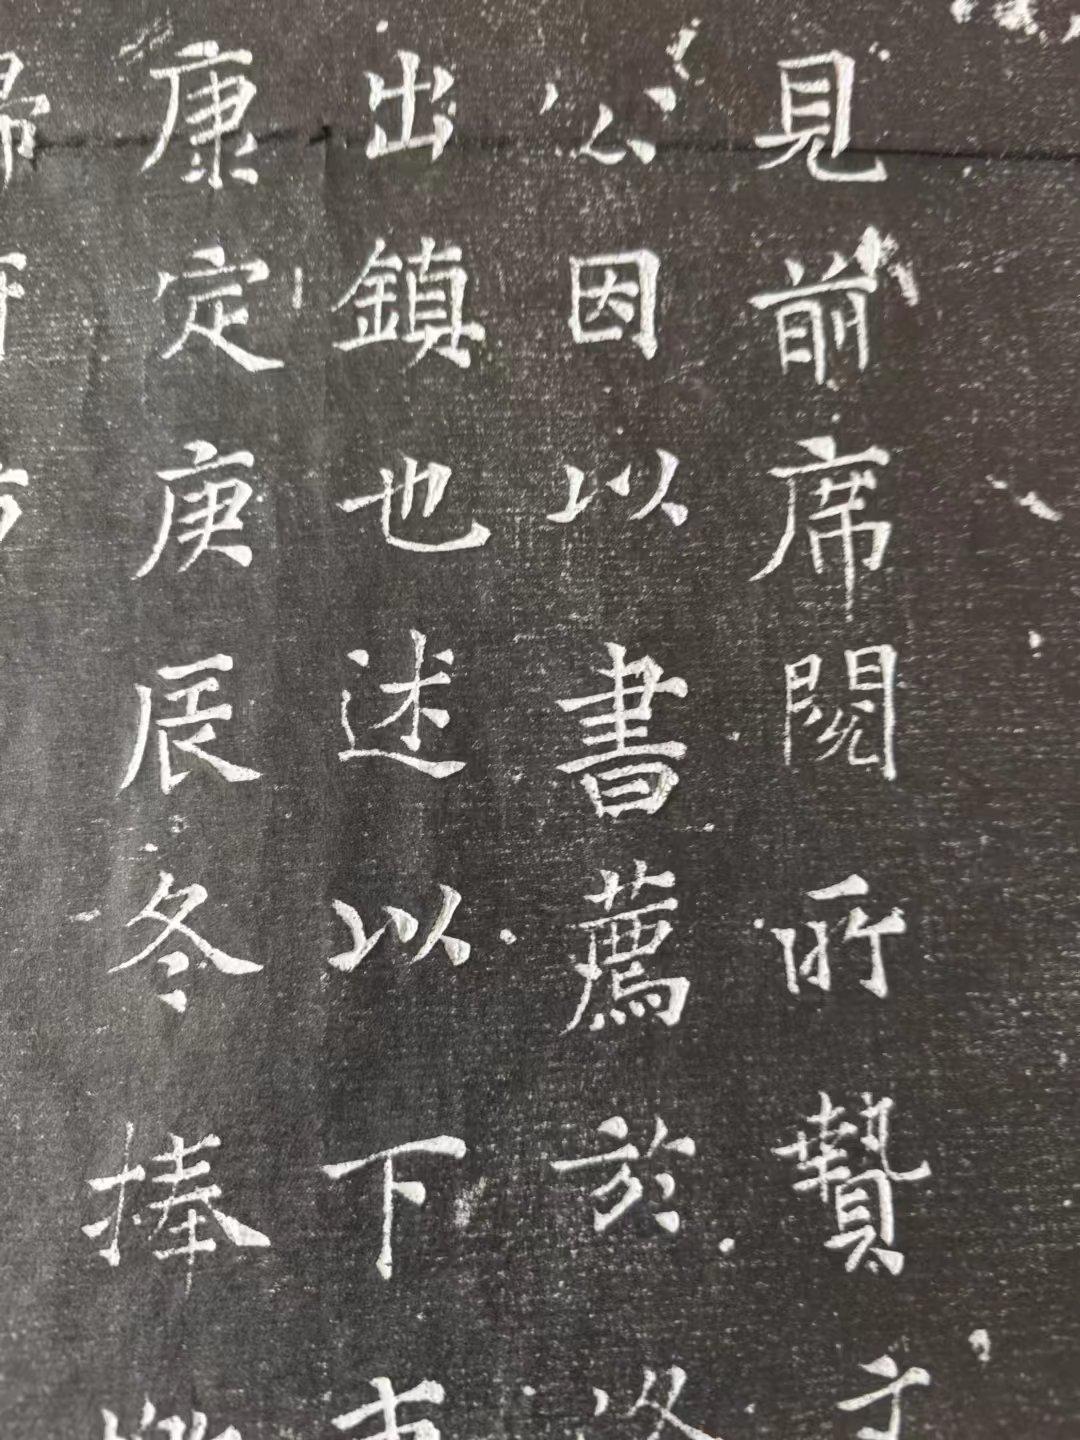 見前席閱所贄文
公因以書薦於
出鎮也述以下
康定庚辰冬捧